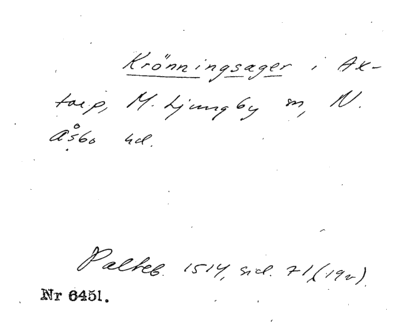 Krönningsager i Ax-
torp, M. Ljungby sn, N.
Åsbo hd.
Palteb. 1514, sid. 71, (19v).
Nr 6451.